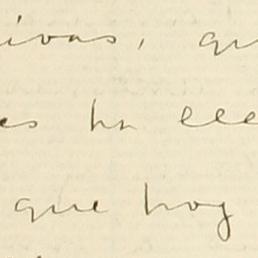 ivas, qu
es ha lle
que hoy